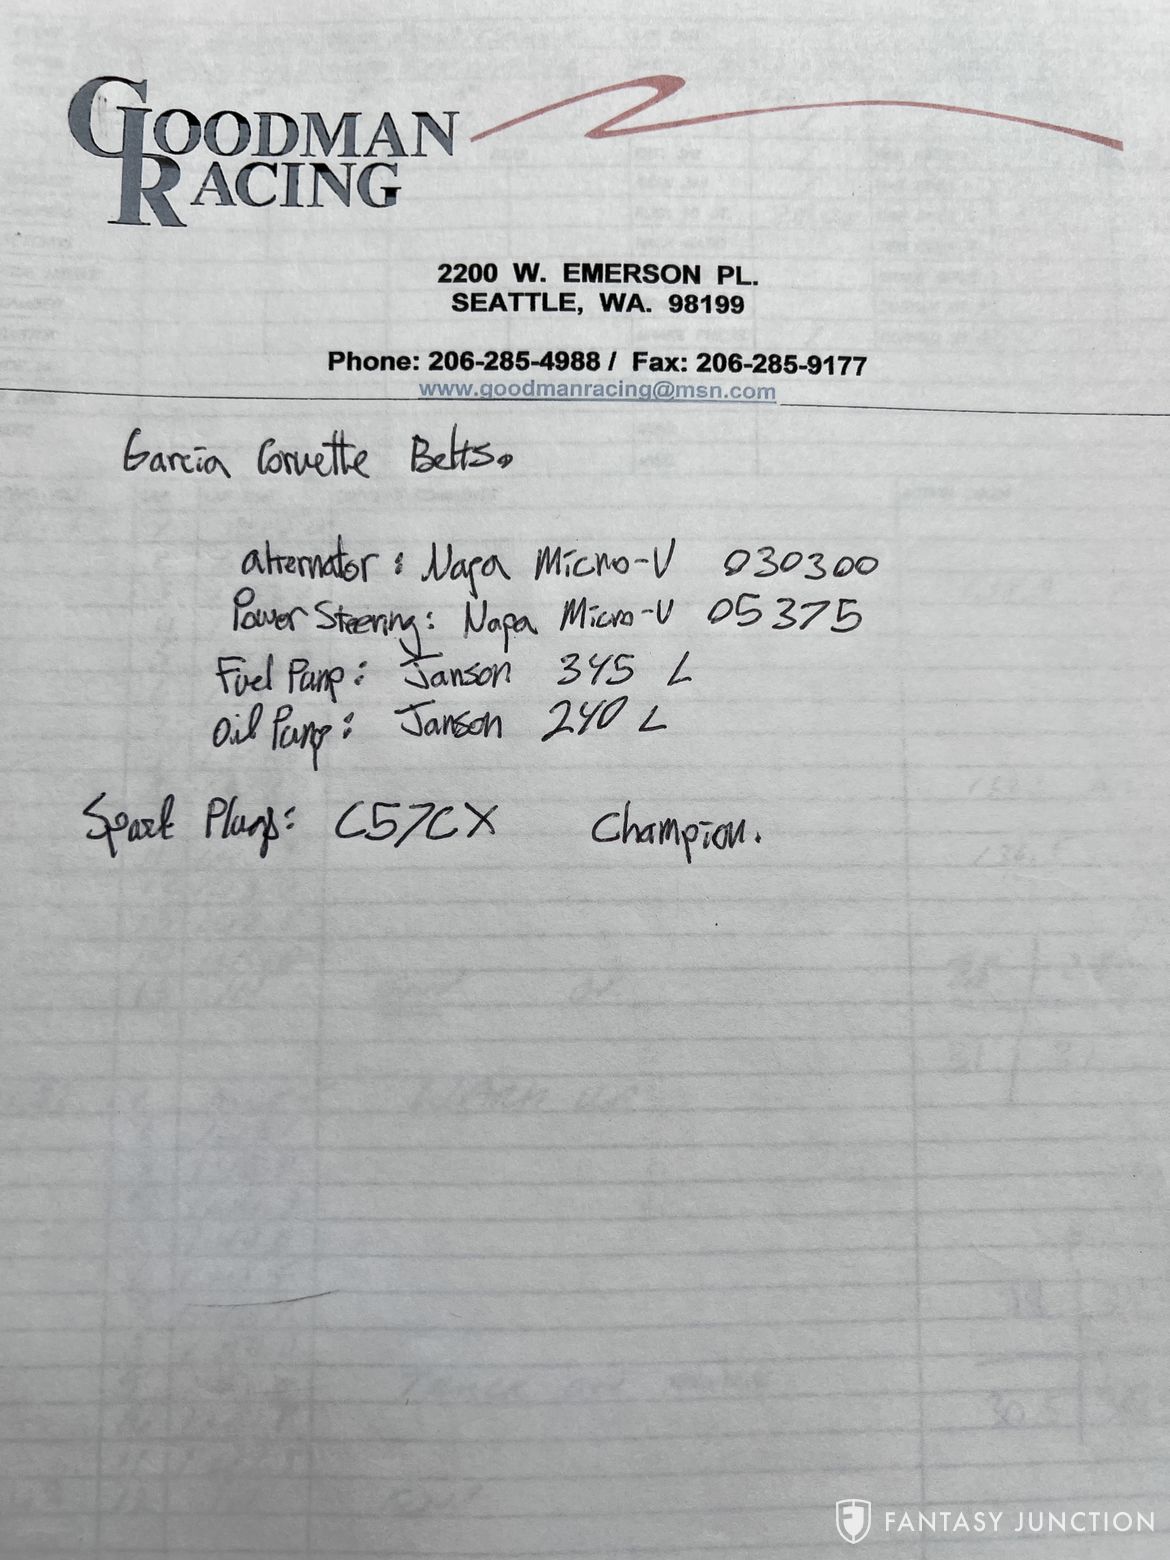 GOODMAN
RACING
2200 W. EMERSON PL.
SEATTLE, WA. 98199
Phone: 206-285-4988 / Fax: 206-285-9177
www.goodmanracing@msn.com
Garcia Corvette Belts.
alternator: Napa Micro-V 030300
Power Steering: Napa Micro-V 05375
Fuel Pump: Janson 345 L
Oil Pump: Janson 240 L
Spark Plugs: C57CX Champion.
FANTASY JUNCTION